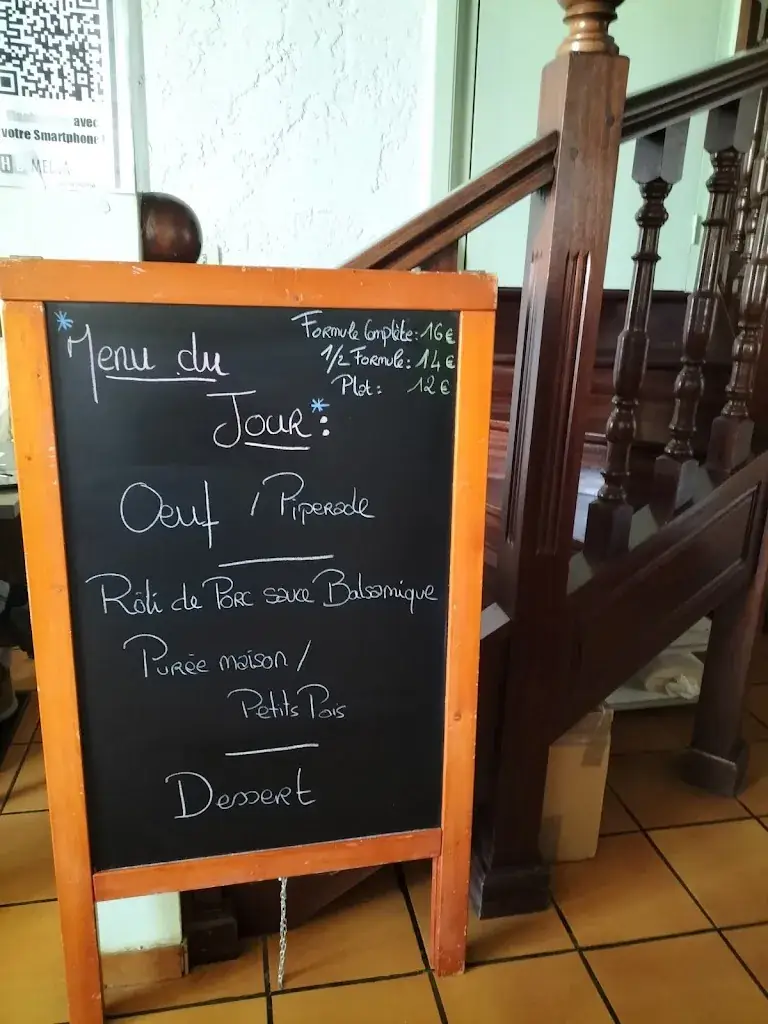 avec
votre Smartphone
*Menu du
Jour*:
Formule Complète: 16€
1/2 Formule: 14€
Plat: 12€
Oeuf / Piperade
Rôti de Porc sauce Balsamique
Purée maison /
Petits Pois
Dessert